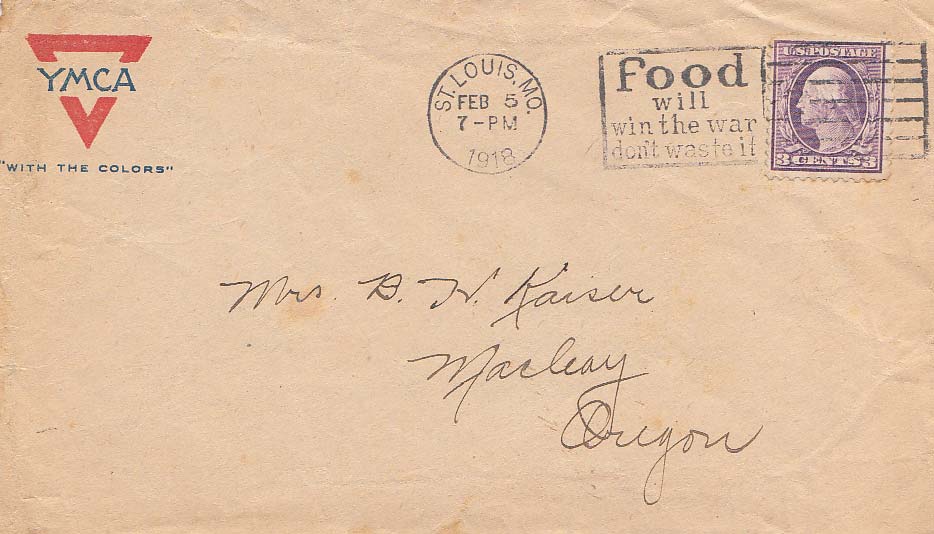 YMCA
"WITH THE COLORS"
ST. LOUIS, MO.
FEB 5
7-PM
1918
Food
will
win the war
don't waste it
U.S. POSTAGE
3 CENTS 3
Mrs. B. H. Kaiser
Macleay
Oregon